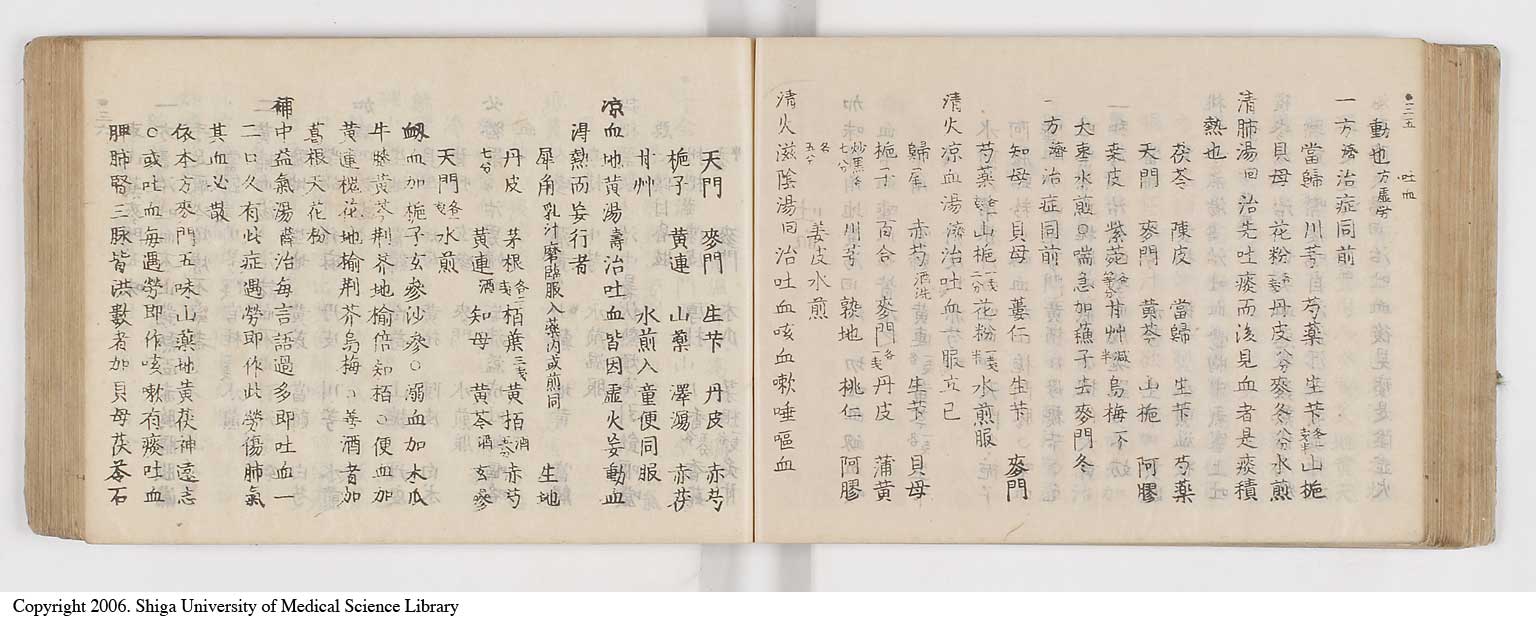 三五
動也 方虛労 吐血
一方 濟 治症同前
當歸 川芎 芍藥 生芐 山梔
貝母 花粉 丹皮 八分 麥冬 八分 水煎
清肺湯 回 治先吐痰而後見血者是痰積
熱也
茯苓 陳皮 當歸 生芐 芍藥
天門 麥門 黃芩 山梔 阿膠
桒皮 紫菀 甘艸 减半 烏梅 一个
大枣水煎 喘急加蘓子去麥門冬
一方 濟 治症同前
知母 貝母 蔞仁 生芐 麥門
芍藥 山梔 一戋二分 花粉 一戋半 水煎服
清火凉血湯 濟 治吐血服立已
歸 尾 赤芍 酒洗 生芐 貝母
梔子 百合 麥門 各一戋 丹皮 蒲黃
炒黑各七分 川芎 熟地 桃仁 阿膠
各五分 姜皮水煎
清火滋陰湯 回 治吐血咳血嗽唾嘔血
天門 麥門 生芐 丹皮 赤芍
梔子 黃連 山藥 澤瀉 赤茯
甘艸 水煎入童便同服
凉血地黃湯 壽 治吐血皆因虛火妄動血
得熱而妄行者
犀角 乳汁磨臨服入藥內或煎同 生地
丹皮 七分 茅根 各二戋 栢葉 三戋 黃栢 酒 赤芍
天門 水煎 黃連 酒 知母 黃芩 酒 玄參
衂血加梔子玄參沙參○溺血加木瓜
牛膝黃芩荆芥地榆倍知栢○便血加
黃連槐花地榆荆芥烏梅○善酒者加
葛根天花粉
補中益氣湯 薛 治每言語過多即吐血一
二口久有此症遇勞即作此勞傷肺氣
其血必散
依本方麥門五味山藥地黃茯神遠志
○或吐血每遇勞即作咳嗽有痰吐血
脾肺腎三脉皆洪數者加貝母茯苓石
Copyright 2006. Shiga University of Medical Science Library